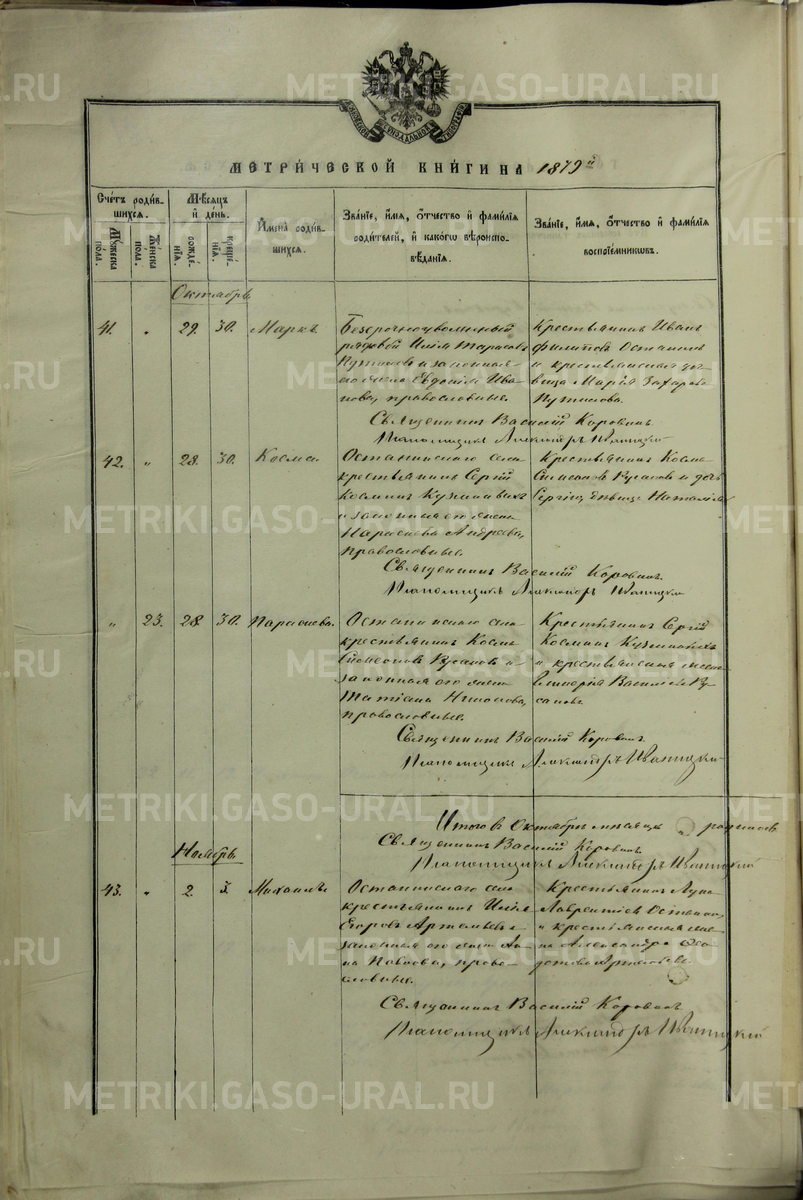 METRIKI.GASO-URAL.RU
МЕТРИ́ЧЕСКОЙ КНИ́ГИ НА 1879й
Сче́тъ роди́в-
шихся.
Мꙋ́жеска
по́ла.
Же́нска
по́ла.
Мѣ́сяцъ
и҆ де́нь.
рожде́-
нїя.
креще́-
нїя.
И҆мена̀ роди́в-
шихся.
Зва́нїе, и҆́мя, ѻ҆́тчество и҆ фами́лїя
роди́телей, и҆ како́гѡ вѣроиспо-
вѣ́данїя.
Зва́нїе, и҆́мя, ѻ҆́тчество и҆ фами́лїя
воспрїе́мникѡвъ.
Октябрь
41. „ 29. 30. Маркъ.
Безсрочноотпускный
рядовой Илія Тарасовъ
Путиловъ и законная
его жена Евдокія Ива-
нова, православные.
Крестьянинъ Иванъ
Филиповъ Останинъ
и крестьянская дѣ-
вица Марія Захарова
Путилова.
Священникъ Василій Коровинъ
Псаломщикъ Александръ Иваницкій
42. „ 28. 30. Косма.
Останинскаго села
крестьянинъ Сергій
Косминъ
и законная его жена
Параскева Андреева,
православные.
Крестьянинъ Косма
Симеоновъ Русаковъ и дочь
Сергія дѣвица Наталія
Священникъ Василій Коровинъ.
Псаломщикъ Александръ Иваницкій
„ 23. 28. 30. Параскева.
Останинскаго села
крестьянинъ Косма
Симеоновъ Русаковъ и
законная его жена
Татіана Никонова,
православные.
Крестьянинъ Сергій
Косминъ
и крестьянская жена
Гликерія Васильева Ру-
сакова.
Священникъ Василій Коровинъ
Псаломщикъ Александръ Иваницкій
Итого въ Октябрѣ мѣсяцѣ родилось
Священникъ Василій Коровинъ
Псаломщикъ Александръ Иваницкій
Ноябрь
43. „ 2. 3. Михаилъ
Останинскаго села
крестьянинъ Илія
Егоровъ Артемьевъ и
законная его жена Ан-
на Павлова, право-
славные.
Крестьянинъ Лука
Лаврентіевъ Останинъ
и крестьянская же-
на Александра Ѳео-
дотова Артемьева
Священникъ Василій Коровинъ
Псаломщикъ Александръ Иваницкій